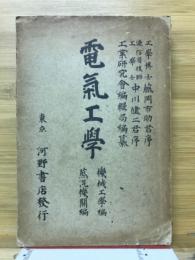 工學博士 鳳岡市助君序
遞信省技師 工學士 中川健二君序
工業研究會編輯局編纂
電氣工學
機械工學編
蒸汽機關編
東京 河野書店發行